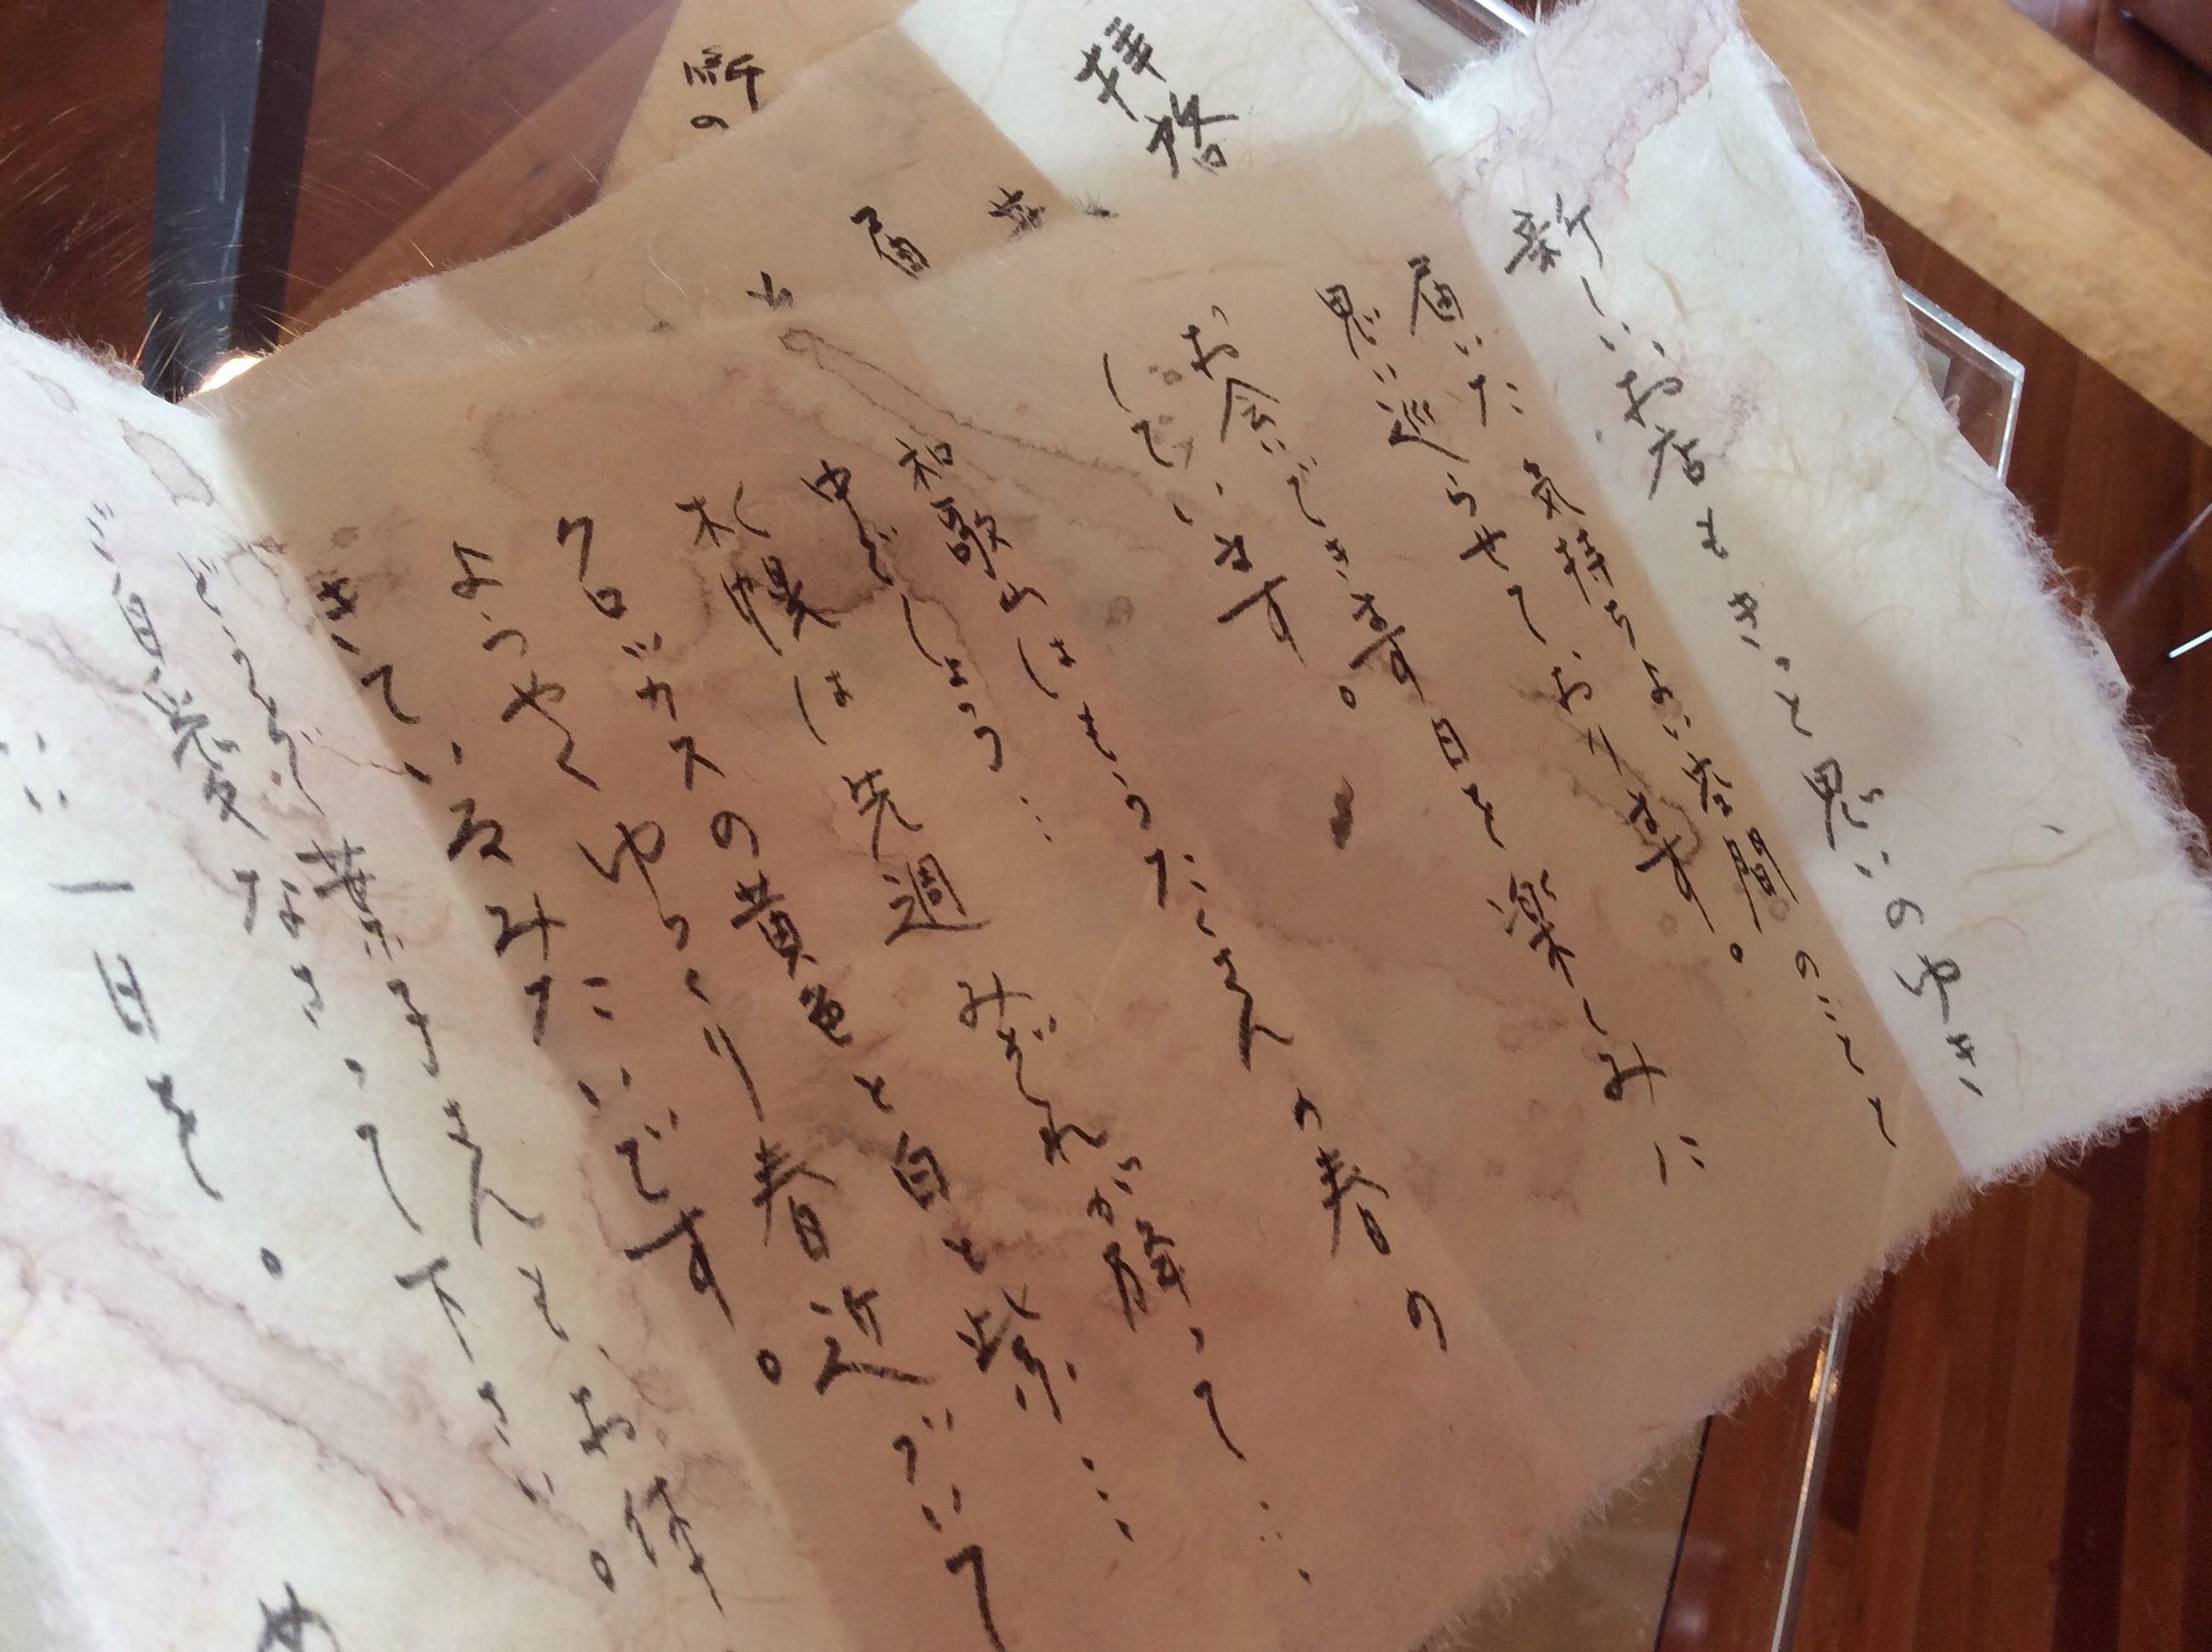 新しいお店もきっと思いのゆき
届いた気持ちよい空間のことと
思い巡らせております。
お会いできます日を楽しみに
しています。
和歌山はもうたくさんの春の
中でしょう…
札幌は先週みぞれが降って…
クロッカスの黄色と白と紫…
ようやくゆっくり春近づいて
きているみたいです。
どうぞ葉子さんも、お体
ご自愛なさって下さい。
いい一日を。
拝啓
届
新の